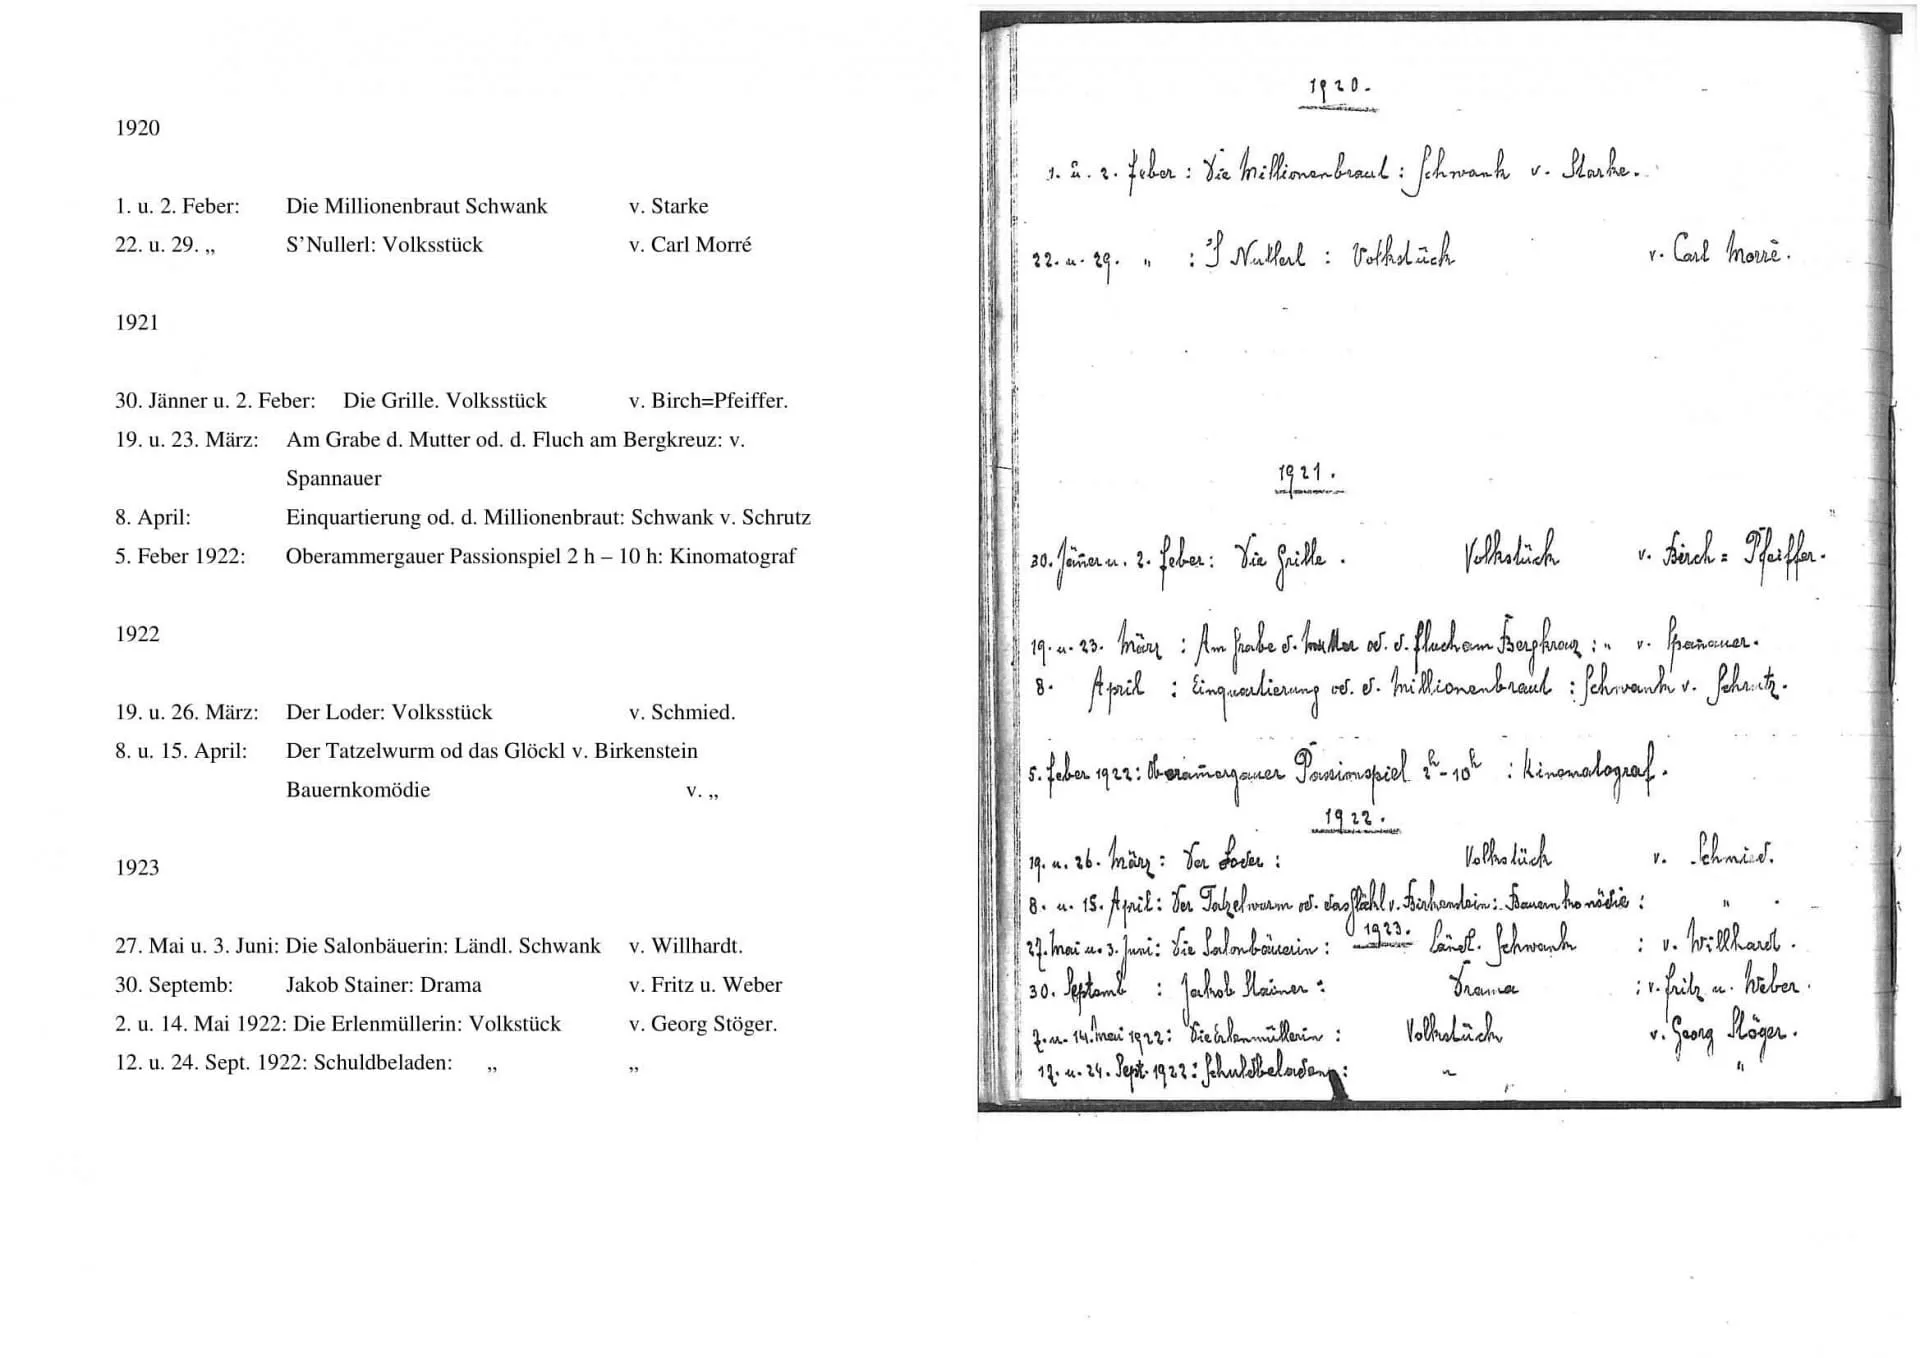 1920
1. u. 2. Feber: Die Millionenbraut Schwank v. Starke
22. u. 29. „ S’Nullerl: Volksstück v. Carl Morré
1921
30. Jänner u. 2. Feber: Die Grille. Volksstück v. Birch=Pfeiffer.
19. u. 23. März: Am Grabe d. Mutter od. d. Fluch am Bergkreuz: v.
Spannauer
8. April: Einquartierung od. d. Millionenbraut: Schwank v. Schrutz
5. Feber 1922: Oberammergauer Passionspiel 2 h – 10 h: Kinomatograf
1922
19. u. 26. März: Der Loder: Volksstück v. Schmied.
8. u. 15. April: Der Tatzelwurm od das Glöckl v. Birkenstein
Bauernkomödie v. „
1923
27. Mai u. 3. Juni: Die Salonbäuerin: Ländl. Schwank v. Willhardt.
30. Septemb: Jakob Stainer: Drama v. Fritz u. Weber
2. u. 14. Mai 1922: Die Erlenmüllerin: Volkstück v. Georg Stöger.
12. u. 24. Sept. 1922: Schuldbeladen: „ „
1920.
1. u. 2. Feber : Die Millionenbraut : Schwank v. Starke.
22. u. 29. " : 'S Nullerl : Volkstück v. Carl Morrè.
1921.
30. Jäner u. 2. Feber : Die Grille . Volkstück v. Birch = Pfeiffer.
19. u. 23. März : Am Grabe d. Mutter od. d. Fluch am Bergkreuz : " v. Spanauer.
8. April : Einquartierung od. d. Millionenbraut : Schwank v. Schrutz.
5. Feber 1922 : Oberamergauer Passionspiel 2h - 10h : Kinomatograf.
1922.
19. u. 26. März : Der Loder : Volkstück v. Schmied.
8. u. 15. April : Der Tatzelwurm od. das Glöckl v. Birkenstein : Bauernkomödie : " .
1923.
27. Mai u. 3. Juni : Die Salonbäuerin : Ländl. Schwank : v. Willhardt .
30. Septemb : Jakob Stainer : Drama : v. Fritz u. Weber .
7. u. 14. Mai 1922 : Die Erlenmüllerin : Volkstück v. Georg Stöger .
17. u. 24. Sept. 1922 : Schuldbeladen : " "